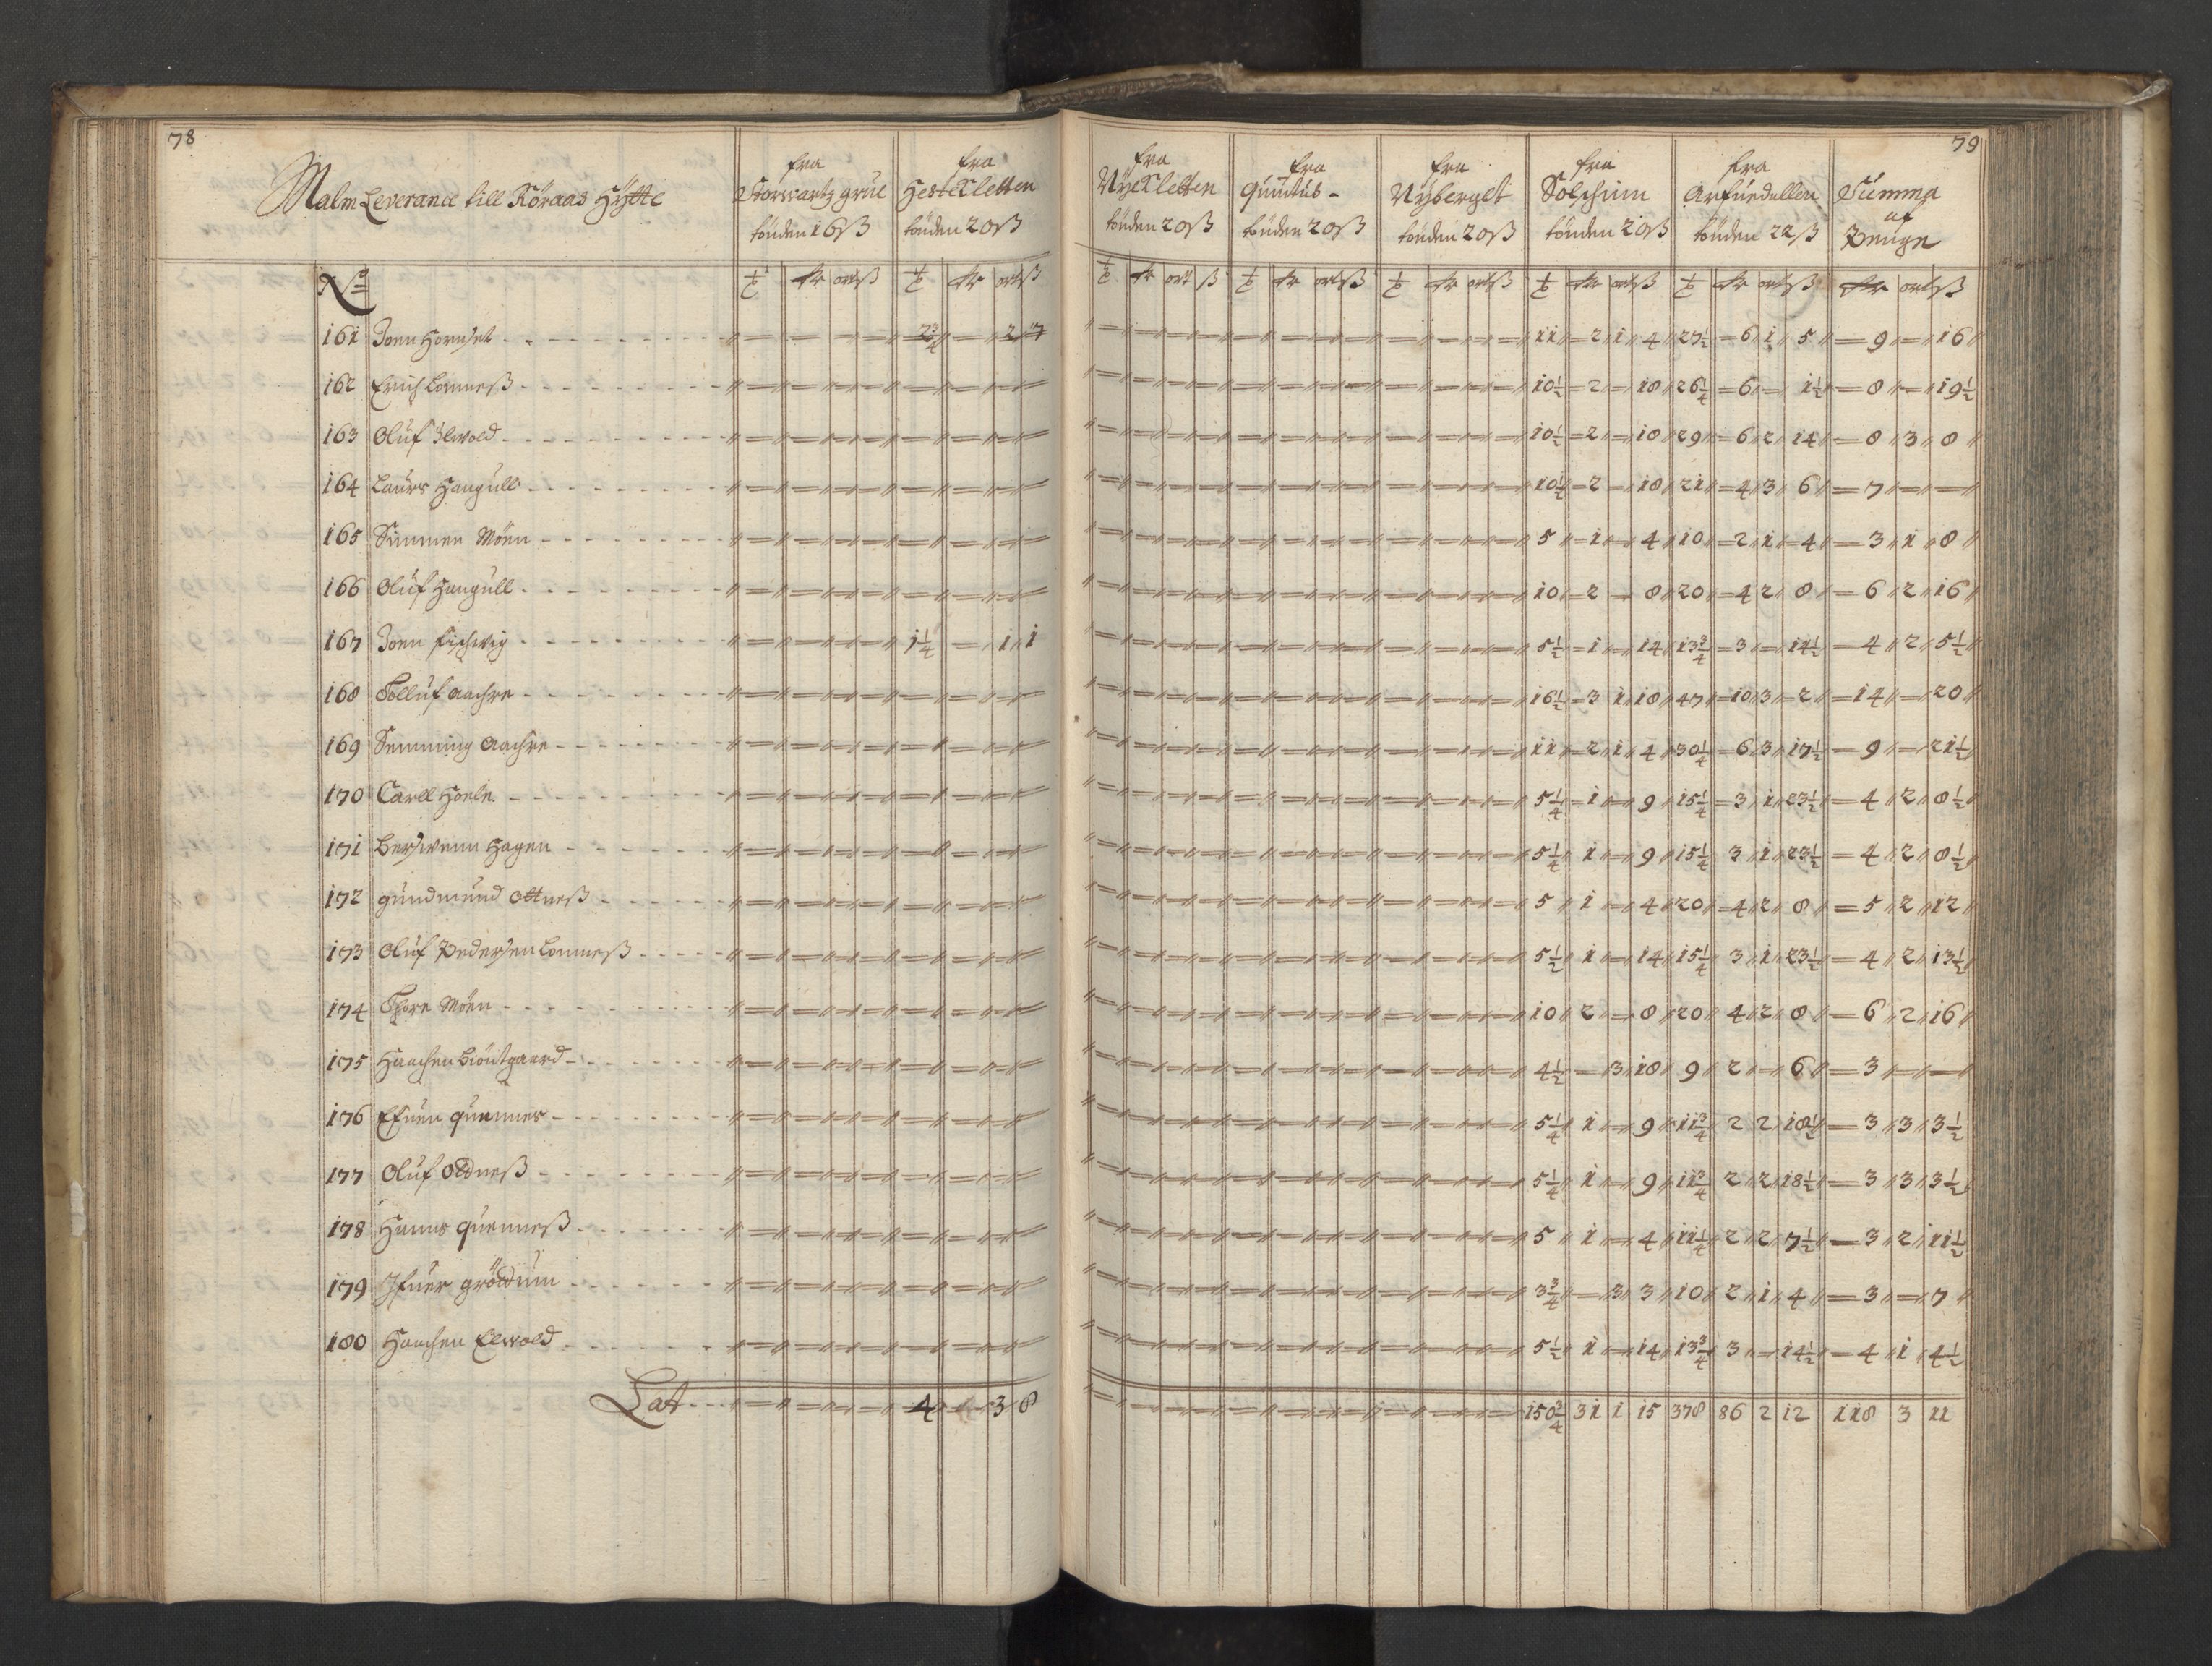 78
79
Malm Leverance till Röraas Hÿtte
fra Storwartz grue tönden 16ß
fra Hesteklletten tönden 20ß
fra Nÿe Klletten tönden 20ß
fra Quintus- tönden 20ß
fra Nÿberget tönden 20ß
fra Solskiin tönden 20ß
fra Arfuedallen tönden 22ß
Summa af Penge
No
ort ß ort ß ort ß ort ß ort ß ort ß ort ß ort ß
161 Joen Hornset 2¾ 2 7 11 2 1 4 27½ 6 1 5 9 16
162 Erich Lonneß 10½ 2 18 26¼ 6 1½ 8 19½
163 Oluf Elwold 10½ 2 18 29 6 2 14 8 3 8
164 Laurs Haugull 10½ 2 18 21 4 3 6 7
165 Simmen Möen 5 1 4 10 2 1 4 3 1 8
166 Oluf Haugull 10 2 8 20 4 2 8 6 2 16
167 Joen 1¼ 1 1 5½ 1 14 13¾ 3 14½ 4 2 5½
168 Tolluf Aachre 16½ 3 1 18 47 10 3 2 14 20
169 Semming Aachre 11 2 1 4 30¼ 6 3 17½ 9 21½
170 Carll Hoele 5¼ 1 9 15¼ 3 1 23½ 4 2 8½
171 Berswenn Hagen 5¼ 1 9 15¼ 3 1 23½ 4 2 8½
172 Gundmund Ottneß 5 1 4 20 4 2 8 5 2 12
173 Oluf Pedersen Lonneß 5½ 1 14 15¼ 3 1 23½ 4 2 13½
174 Thore Möen 10 2 8 20 4 2 8 6 2 16
175 Haachen Biöutgaard 4½ 3 18 9 2 6 3
176 Efuen Quennes 5¼ 1 9 11¾ 2 2 18½ 3 3 3½
177 Oluf Oddneß 5¼ 1 9 11¾ 2 2 18½ 3 3 3½
178 Hanns Quenneß 5 1 4 11¼ 2 2 7½ 3 2 11½
179 Ifuer Gröddum 3¾ 3 3 10 2 1 4 3 7
180 Haachen Elwold 5½ 1 14 13¾ 3 14½ 4 1 4½
Lat 4 3 8 150¾ 31 1 15 378 86 2 12 118 3 11